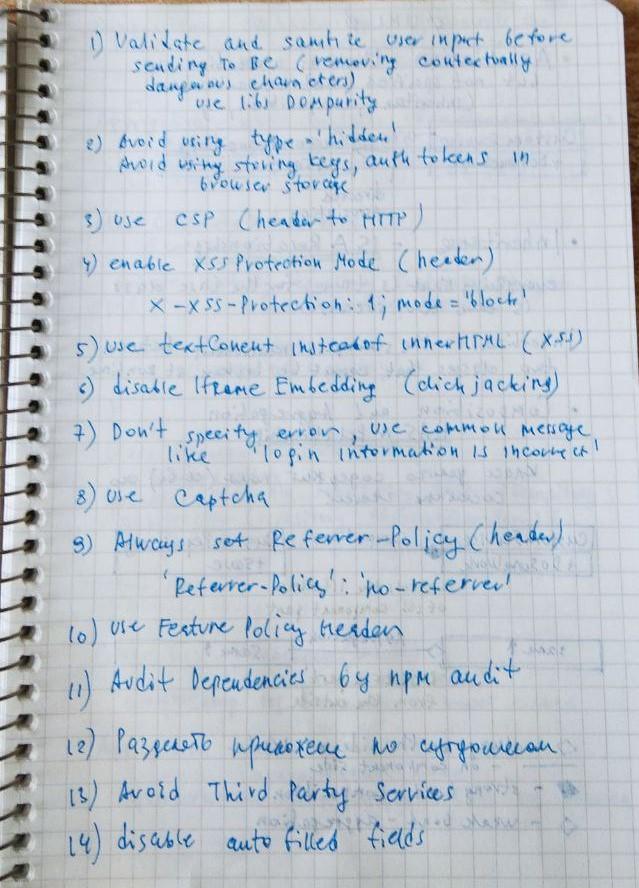 1) Validate and sanitize user input before
sending to BE (removing contextually
dangerous characters)
use libs DOMpurity
2) Avoid using type='hidden'
Avoid using storing keys, auth tokens in
browser storage
3) use CSP (header to HTTP)
4) enable XSS Protection Mode (header)
X-XSS-Protection: 1; mode='block'
5) use textConent instead of innerHTML (XSS)
6) disable Iframe Embedding (clickjacking)
7) Don't specity error, use common message
like 'login information is incorrect'
8) use Captcha
9) Always set Referrer-Policy (header)
'Referrer-Policy': 'no-referrer'
10) use Feature Policy Header
11) Audit Dependencies by npm audit
12) Разделять по
13) Avoid Third Party Services
14) disable auto filled fields